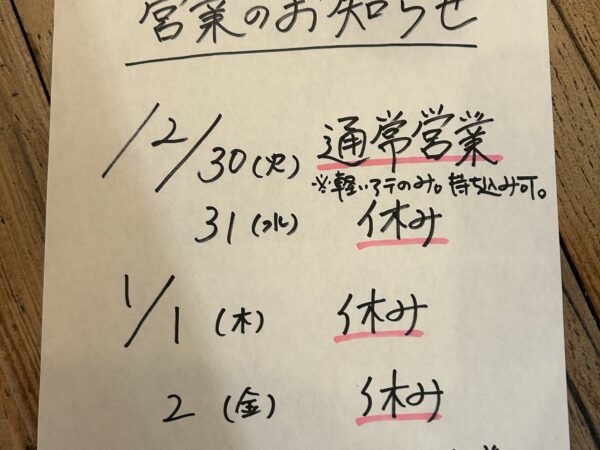 営業のお知らせ
12/30(火) 通常営業
※軽いアテのみ。持ち込み可。
31(水) 休み
1/1(木) 休み
2(金) 休み